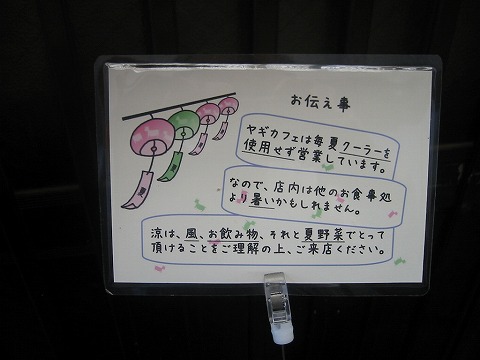 お伝え事
ヤギカフェは毎夏クーラーを
使用せず営業しています。
なので、店内は他のお食事処
より暑いかもしれません。
涼は、風、お飲み物、それと夏野菜でとって
頂けることをご理解の上、ご来店ください。